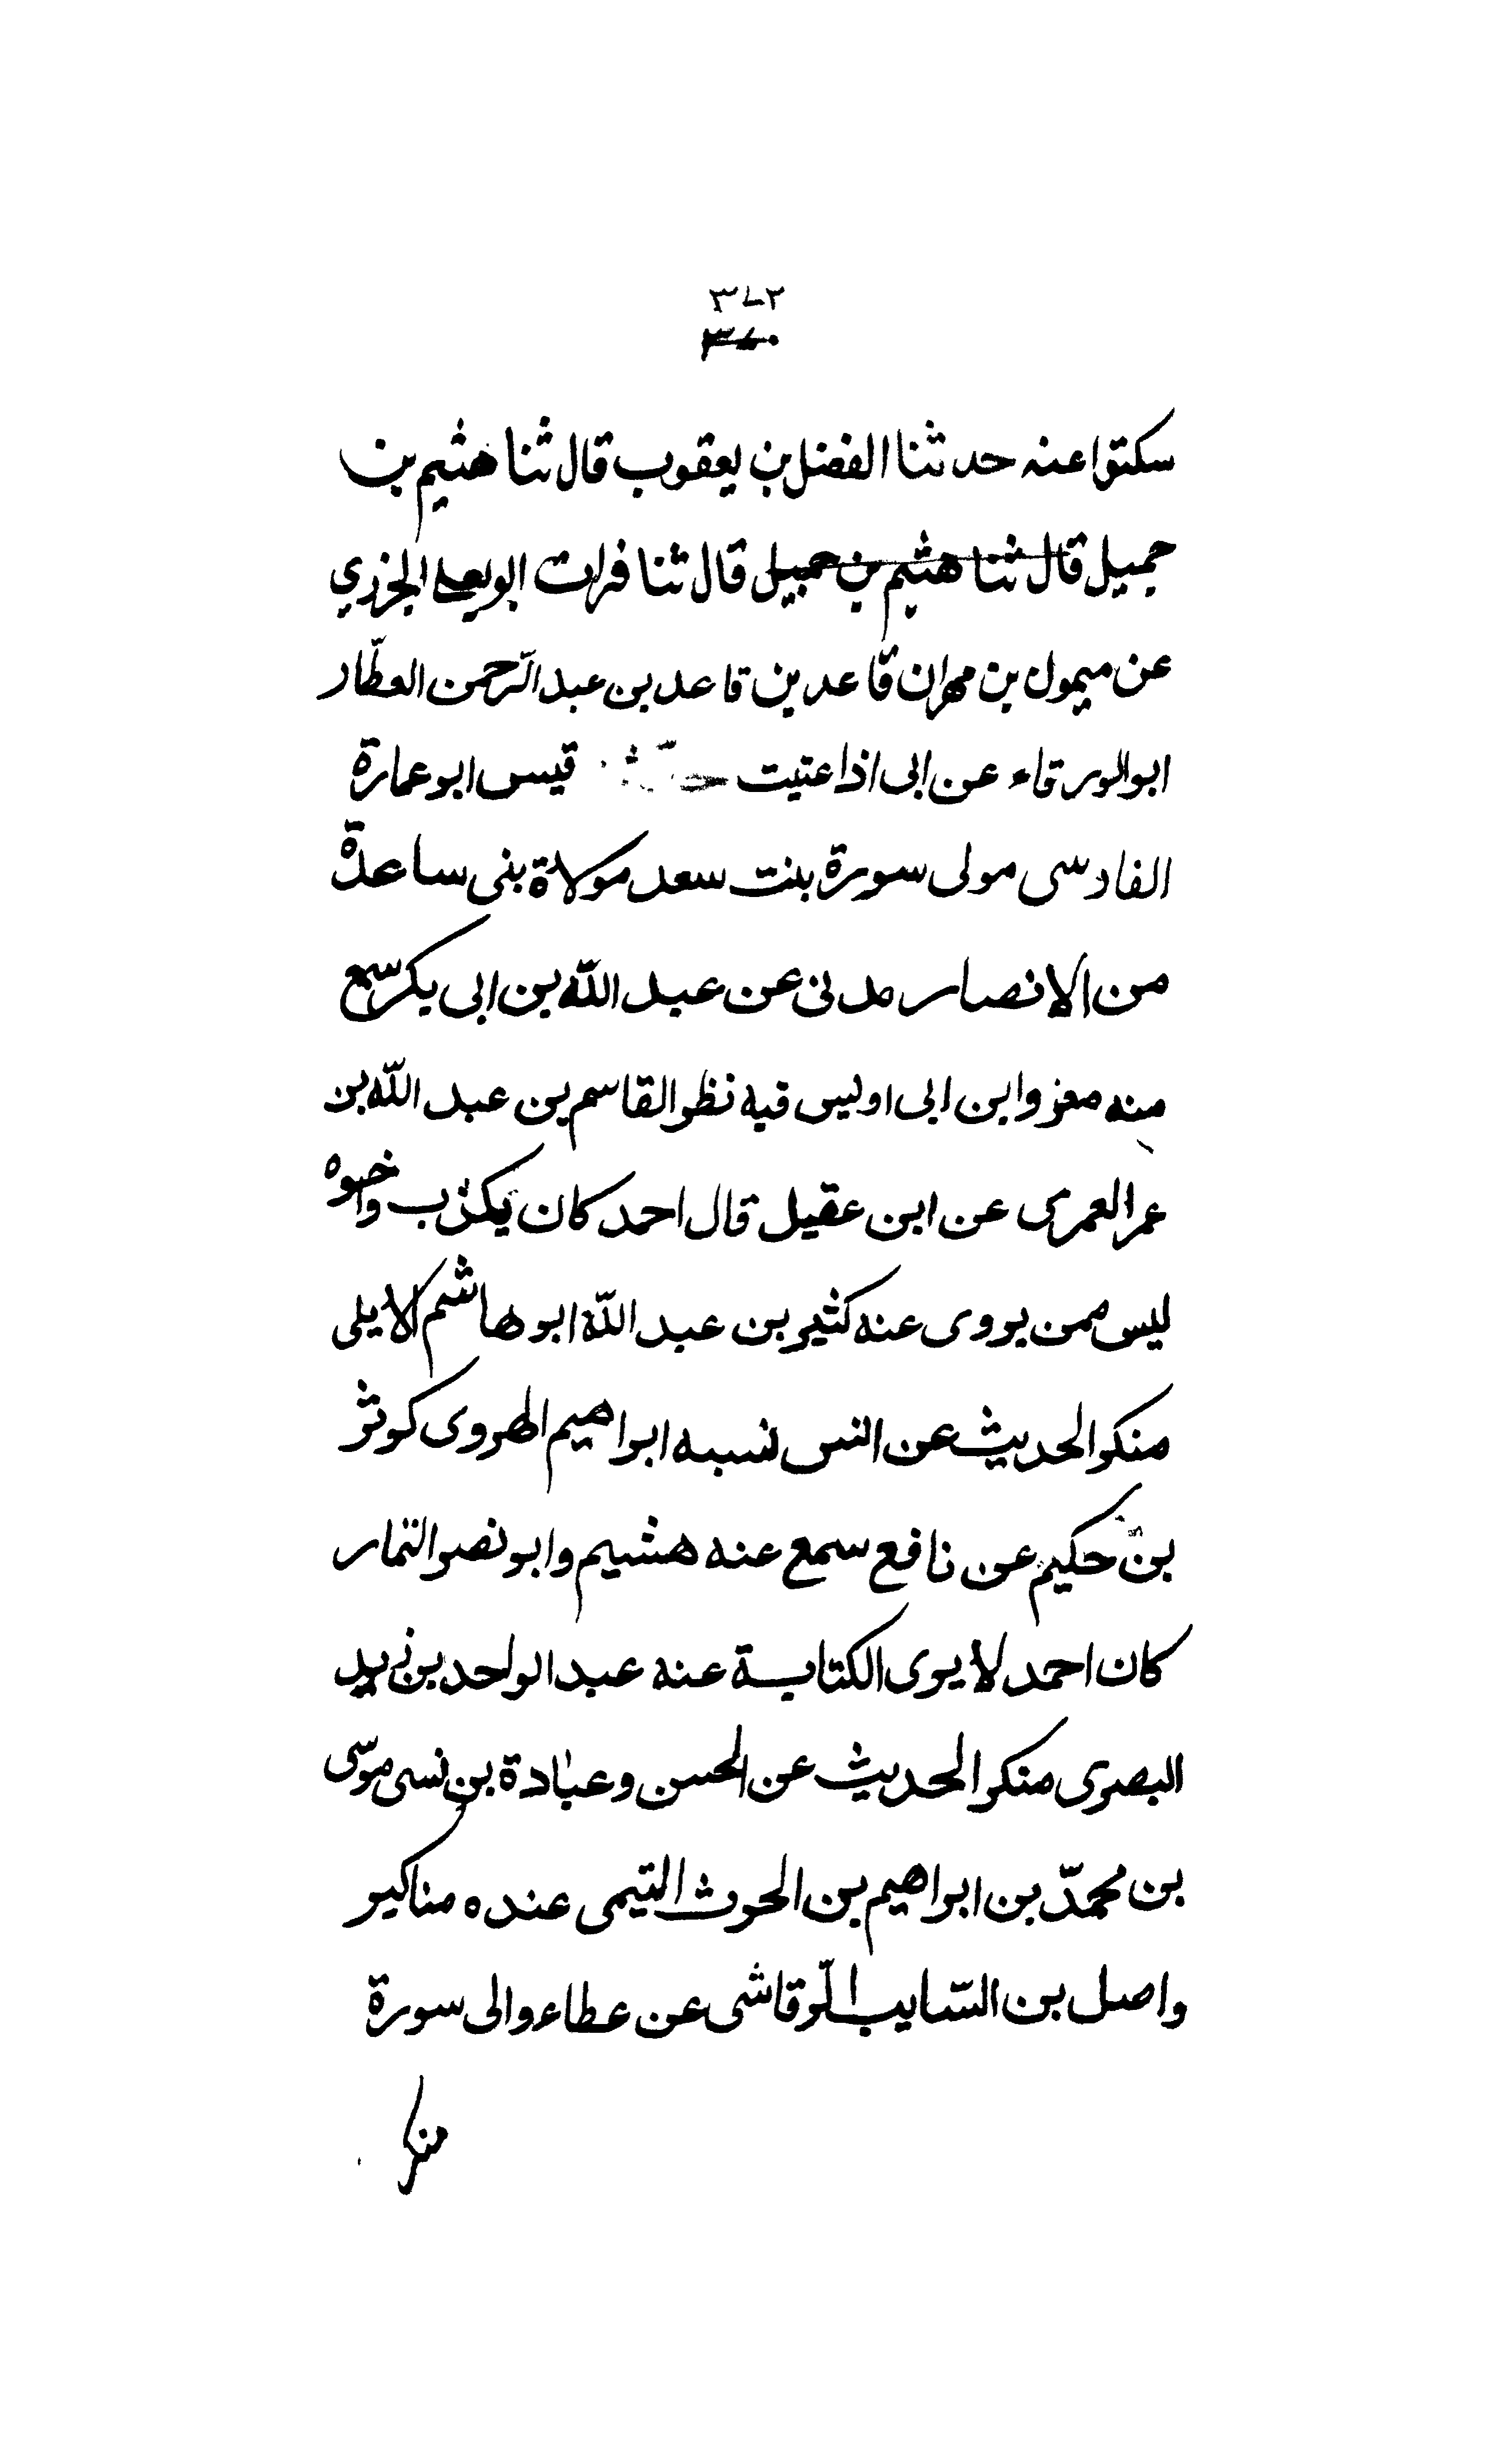 ٣٧٢
٣٧٠
سكتوا عنه حدثنا الفضل بن يعقوب قال ثنا هثيم بن
جميل قال ثنا هثيم بن جميل قال ثنا فرات ابو يعلى الجزري
عن ميمول بن مهران قاعد بن قاعد بن عبد الرّحمن العطّار
ابو الورقاء عن ابى اذا عتيت قيس ابو عمارة
الفادسى مولى سورة بنت سعد مولاة بنى ساعدة
من الانصار مدنى عن عبد اللّه بن ابى يكر سمع
منه معز وابن ابى اوليس فيه نظر القاسم بن عبد اللّه بن
عمر العمرى عن ابن عقيل قال احمد كان يكذب واخوه
ليس ممن يروى عنه كثير بن عبد اللّه ابو هاشم الايلى
منكر الحديث عن انس نسبه ابراهيم الهروى كوثر
بن حكيم عن نافع سمع عنه هشيم وابو نصر التمار
كان احمد لا يوى الكتابة عنه عبد الواحد بن زيد
البصرى منكر الحديث عن الحسن وعبادة بن نسى موسّى
بن محمدّ بن ابراهيم بن الحوث التيمى عنده مناكير
واصل بن السّايب الرّقاشى عن عطاء والى سورة
منكر